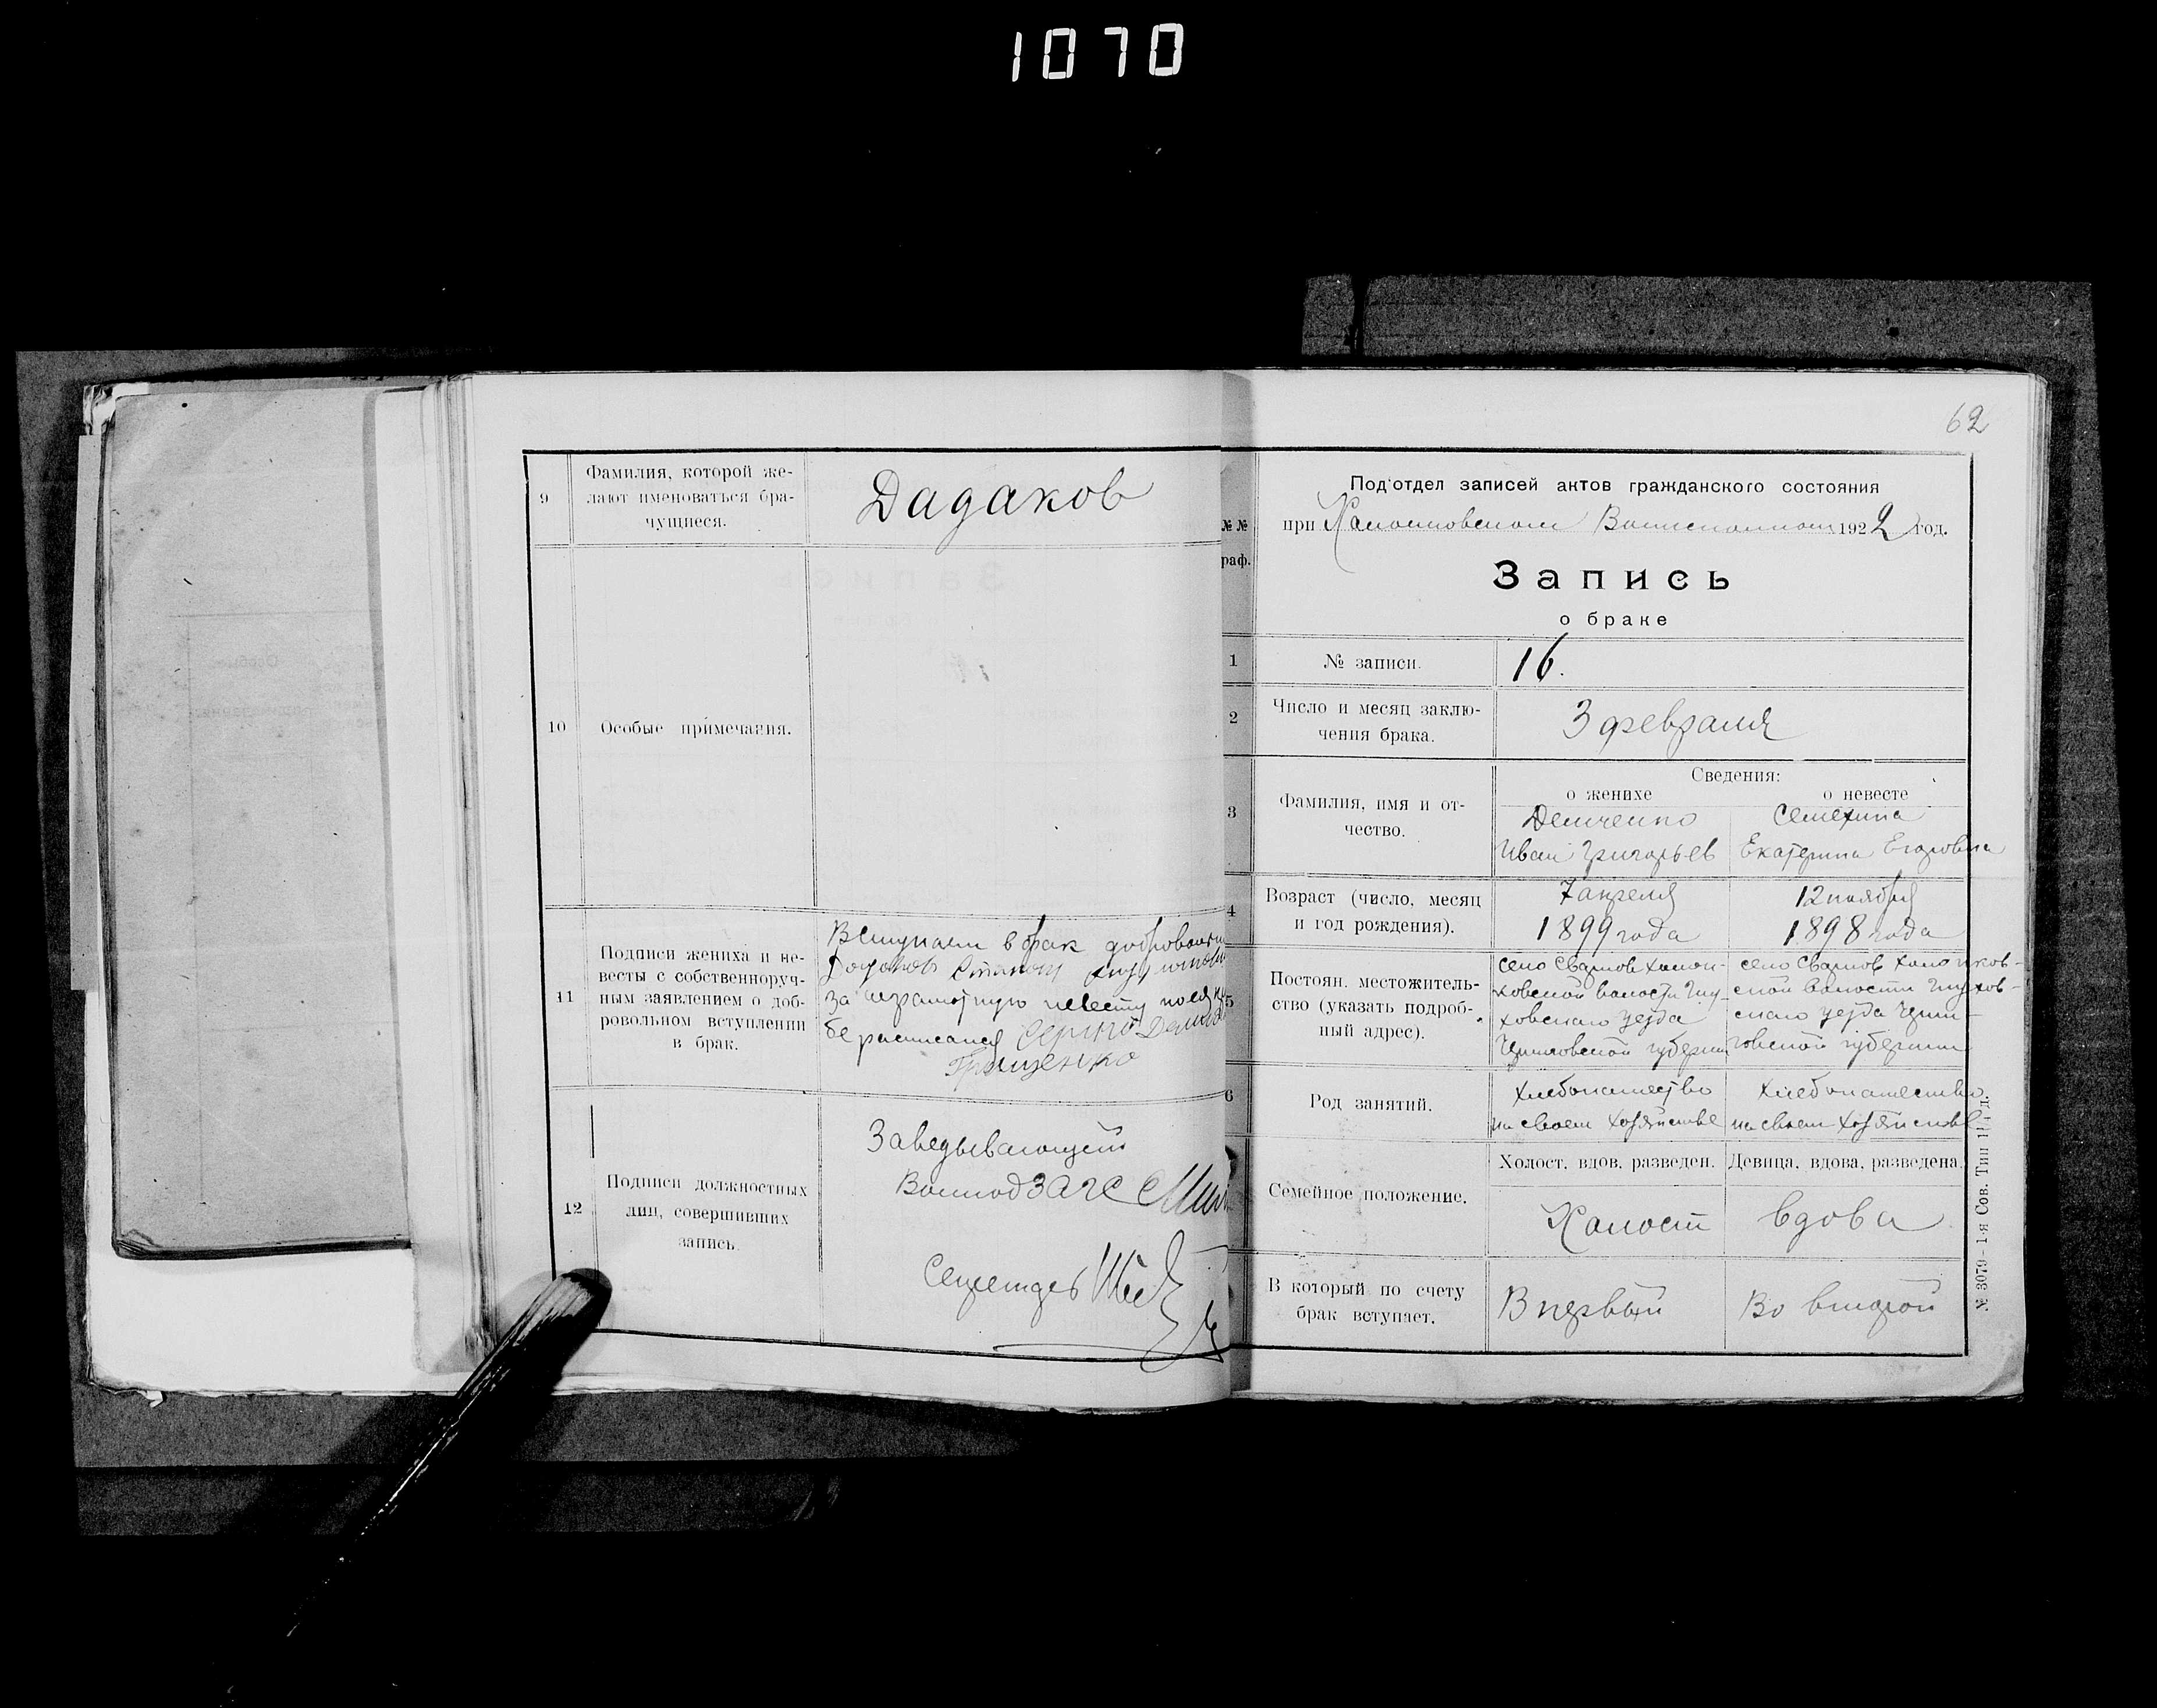 1070
62
9
Фамилия, которой же-
лают именоваться бра-
чущиеся.
Дадаков
10
Особые примечания.
11
Подписи жениха и не-
весты с собственноруч-
ным заявлением о доб-
ровольном вступлении
в брак.
Вступаем в брак
за неграмотную невесту
бе расписался
Грищенко
12
Подписи должностных
лиц, совершивших
запись.
Заведывающий
ЗАГС
№ №
граф.
Под'отдел записей актов гражданского состояния
при 1922 год.
Запись
о браке
1
№ записи.
16.
2
Число и месяц заклю-
чения брака.
3 февраля
Сведения:
о женихе
о невесте
3
Фамилия, имя и от-
чество.
Демченко
Иван Григорьев
Семехина
Екатерина Егоровна
4
Возраст (число, месяц
и год рождения).
7 апреля
1899 года
12 ноября
1898 года
5
Постоян. местожитель-
ство (указать подроб-
ный адрес).
село
волости Глу-
ховского уезда
Черниговской губернии
село
волости Глухов-
ского уезда Черни-
говской губернии
6
Род занятий.
хлебопашество
на своем хозяйстве
хлебопашество
на своем хозяйстве
Семейное положение.
Холост, вдов, разведен.
Девица, вдова, разведена.
Холост
вдова
В который по счету
брак вступает.
В первый
Во второй
№ 3079 – 1-я Сов. Тип